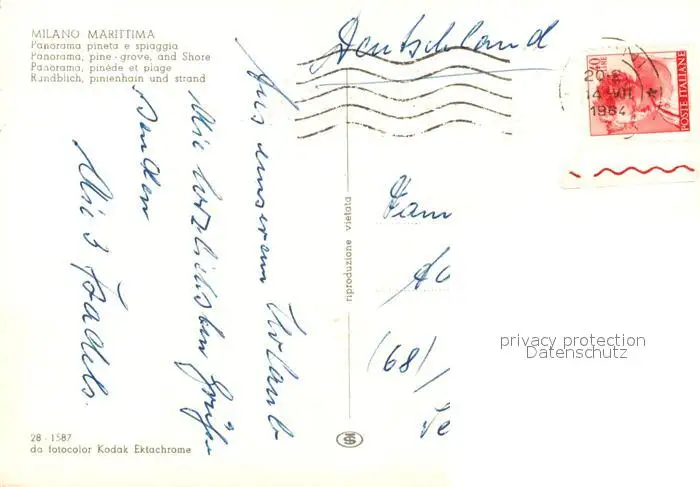 MILANO MARITTIMA
Panorama pineta e spiaggia
Panorama, pine-grove, and Shore
Panorama, pinède et plage
Rundblich, pinienhain und strand
Deutschland
40
LIRE
POSTE ITALIANE
20-
14 VII
1964
Aus unserem Urlaub
die herzlichsten Grüße
senden
Die 3 Zadels.
riproduzione vietata
Fam
(68)
privacy protection
Datenschutz
28 - 1587
da fotocolor Kodak Ektachrome